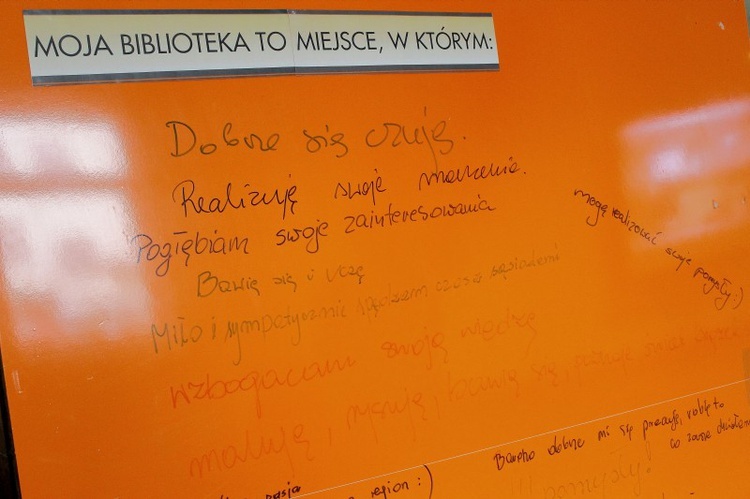 MOJA BIBLIOTEKA TO MIEJSCE, W KTÓRYM:
Dobrze się czuję.
Realizuję swoje marzenia.
Pogłębiam swoje zainteresowania
mogę realizować swoje pomysły :)
Bawię się i uczę
Miło i sympatycznie spędzam czas z sąsiadami
wzbogacam swoją wiedzę
maluję, rysuję, bawię się, poznaję świat
Bardzo dobrze mi się pracuje, robię to
co zawsze
pasja
region :)